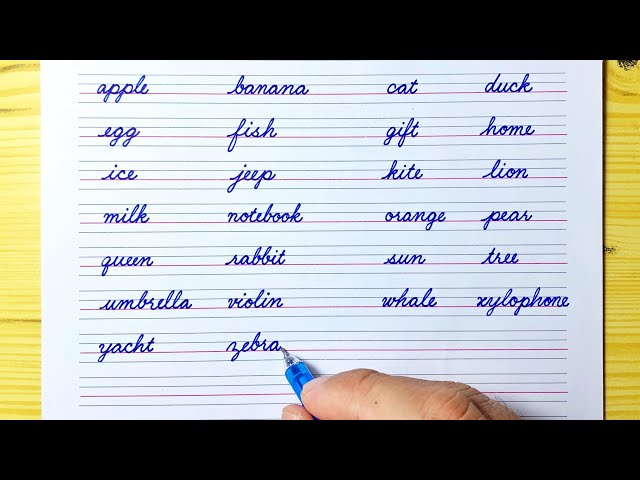 apple banana cat duck
egg fish gift home
ice jeep kite lion
milk notebook orange pear
queen rabbit sun tree
umbrella violin whale xylophone
yacht zebra